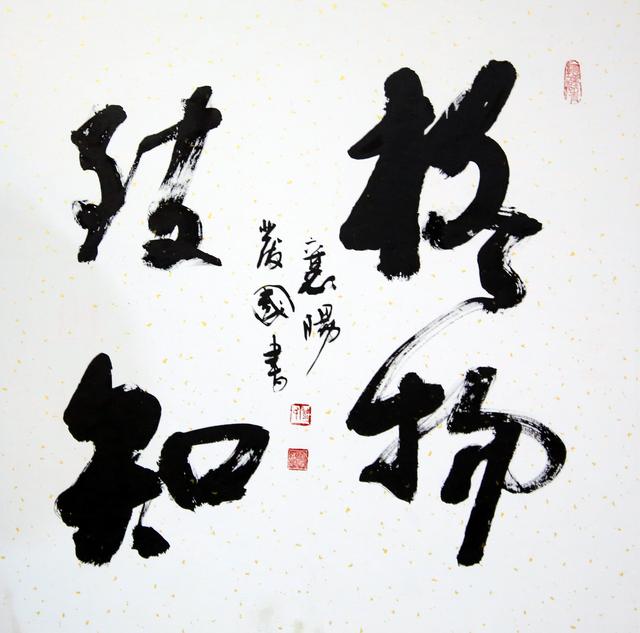 格物
致知
襄陽
國書